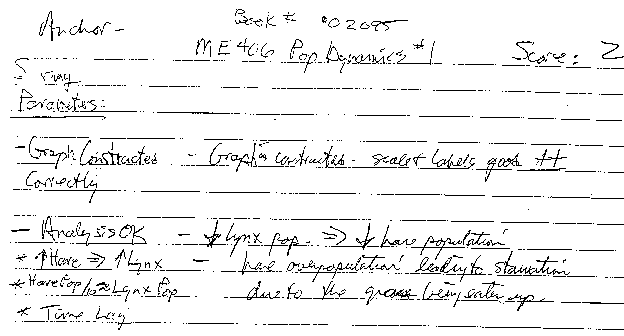 Anchor - Book # 02095
ME 406 Pop Dynamics #1 Score: 2
Parameters:
- Graph Constructed - Graph is constructed - scale & labels good ++
Correctly
- Analysis OK - ↓ Lynx pop. ⇒ ↓ hare population
* ↑ Hare ⇒ ↑ Lynx - hare overpopulation leading to starvation
* Hare Pop Lynx Pop due to the grass being eaten up.
* Time Lag